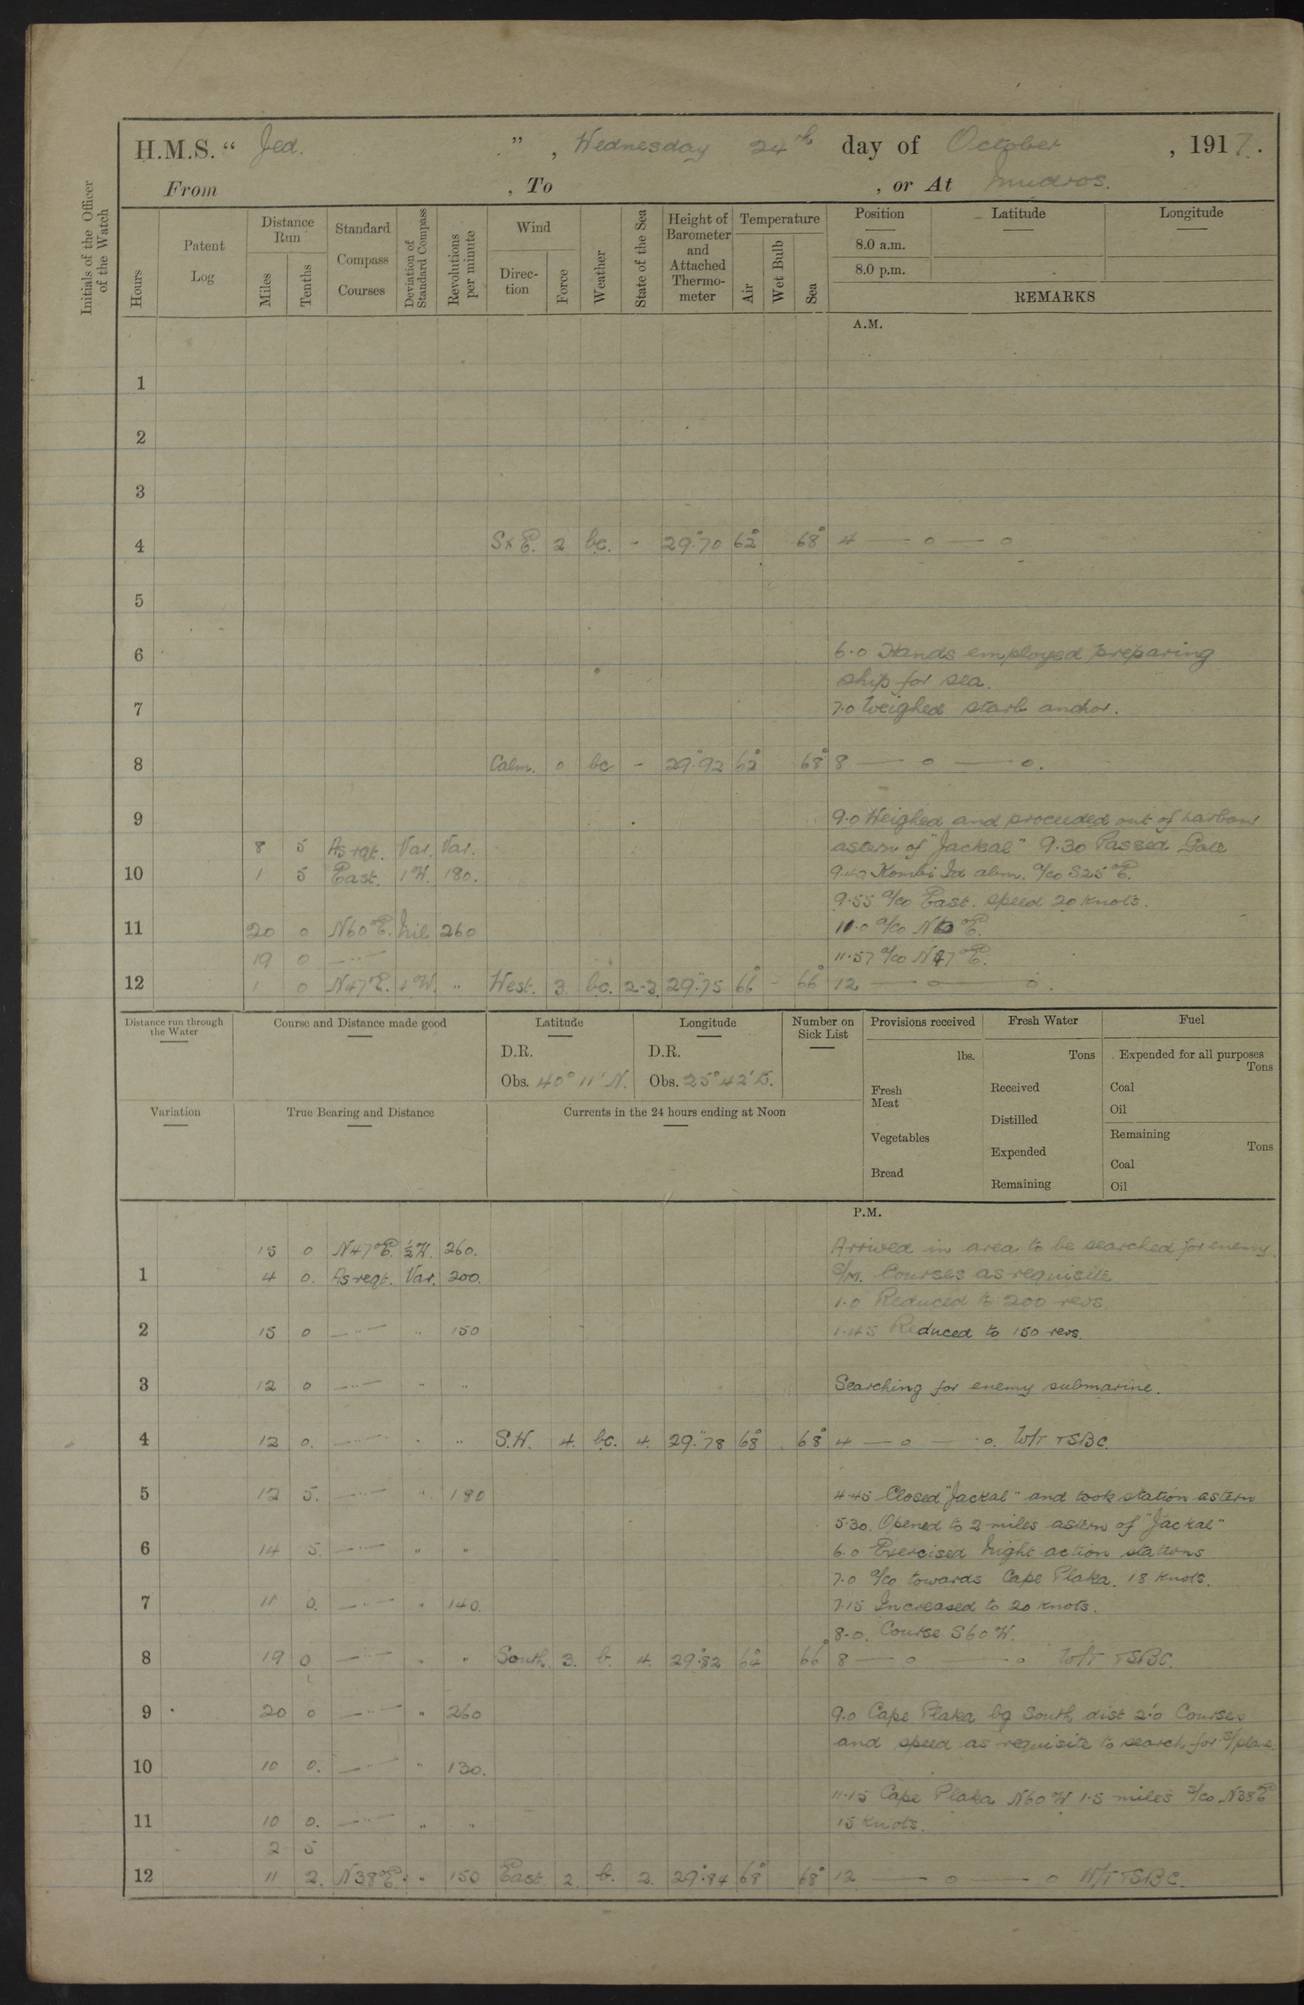 H.M.S. “ Jed. ” , Wednesday 24th day of October , 1917.
From , To , or At Mudros.
Initials of the Officer of the Watch
Hours
Patent Log
Distance Run
Miles
Tenths
Standard Compass Courses
Deviation of Standard Compass
Revolutions per minute
Wind
Direc-tion
Force
Weather
State of the Sea
Height of Barometer and Attached Thermo-meter
Temperature
Air
Wet Bulb
Sea
Position Latitude Longitude
8.0 a.m.
8.0 p.m.
REMARKS
A.M.
1
2
3
4 SxE. 2 bc. - 29.70 62° 68° 4 — o — o
5
6 6.0 Hands employed preparing
ship for sea.
7 7.0 Weighed starb anchor.
8 Calm. o bc - 29.92 62° 68° 8 — o — o.
9 9.0 Weighed and proceeded out of harbour
8 5 As rqt. Var. Var. astern of "Jackal" 9.30 Passed Gate
10 1 5 East. 1W. 180. Kombi Id abm. a/co S25°E.
9.55 a/co East. speed 20 knots.
11 20 0 N60°E. Nil 260 11.0 a/co N60°E.
19 0 —"— 11.57 a/co N47°E.
12 1 0 N47°E. ½W. " West. 3. bc. 2-3. 29.75 66° - 66° 12 — o — o.
Distance run through the Water
Course and Distance made good
Latitude
D.R.
Obs. 40° 11' N.
Longitude
D.R.
Obs. 25° 42' E.
Number on Sick List
Provisions received
lbs.
Fresh Meat
Vegetables
Bread
Fresh Water
Tons
Received
Distilled
Expended
Remaining
Fuel
Expended for all purposes
Tons
Coal
Oil
Remaining
Tons
Coal
Oil
Variation
True Bearing and Distance
Currents in the 24 hours ending at Noon
P.M.
15 0 N47°E. ½W. 260. Arrived in area to be searched for enemy
1 4 0. As reqt. Var. 200. S/M. Courses as requisite
1.0 Reduced to 200 revs.
2 15 0 —"— " 150 1.45 Reduced to 150 revs.
3 12 0 —"— " " Searching for enemy submarine.
4 12 0. —"— " " S.W. 4. bc. 4. 29.78 68° 68° 4 — o — o. W/T TSBC.
5 12 5. —"— " 180 4.45 Closed "Jackal" and took station astern
5.30. Opened to 2 miles astern of "Jackal"
6 14 5 —"— " " 6.0 Exercised Night action stations
7.0 a/co towards Cape Plaka. 18 knots.
7 11 0. —"— " 140. 7.15 Increased to 20 knots.
8.0. Course S60W.
8 19 0 —"— " " South. 3. b. 4. 29.82 64° 66° 8 — o — o W/T TSBC.
9 20 0 —"— " 260 9.0 Cape Plaka bg South, dist 2.0 Courses
and speed as requisite to search for S/plane.
10 10 0. —"— " 130.
11.15 Cape Plaka N60W 1.5 miles a/co N38°E
11 10 0. —"— " " 15 knots.
2 5
12 11 2. N38°E. " 150 East. 2. b. 2. 29.84 68° 68° 12 — o — o W/T TSBC.